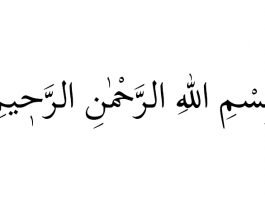 بِسْمِ اللهِ الرَّحْمٰنِ الرَّحٖيمِ